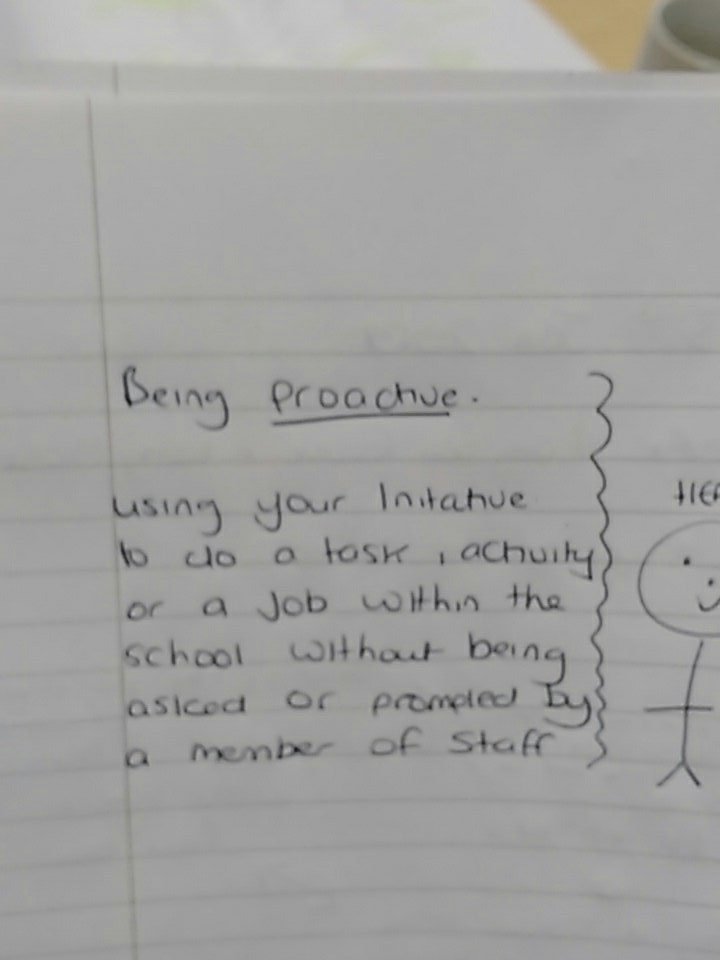 Being proactive.
using your Initative
to do a task, activity
or a Job within the
school without being
asked or prompted by
a member of Staff